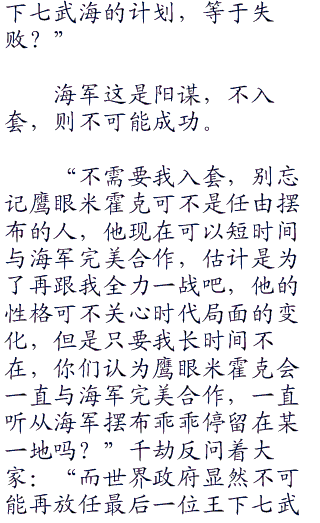 下七武海的计划，等于失
败？”
海军这是阳谋，不入
套，则不可能成功。
“不需要我入套，别忘
记鹰眼米霍克可不是任由摆
布的人，他现在可以短时间
与海军完美合作，估计是为
了再跟我全力一战吧，他的
性格可不关心时代局面的变
化，但是只要我长时间不
在，你们认为鹰眼米霍克会
一直与海军完美合作，一直
听从海军摆布乖乖停留在某
一地吗？”千劫反问着大
家：“而世界政府显然不可
能再放任最后一位王下七武